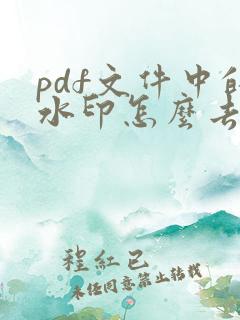 pdf文件中的
水印怎麼去
程紅已
未任同意禁止转载